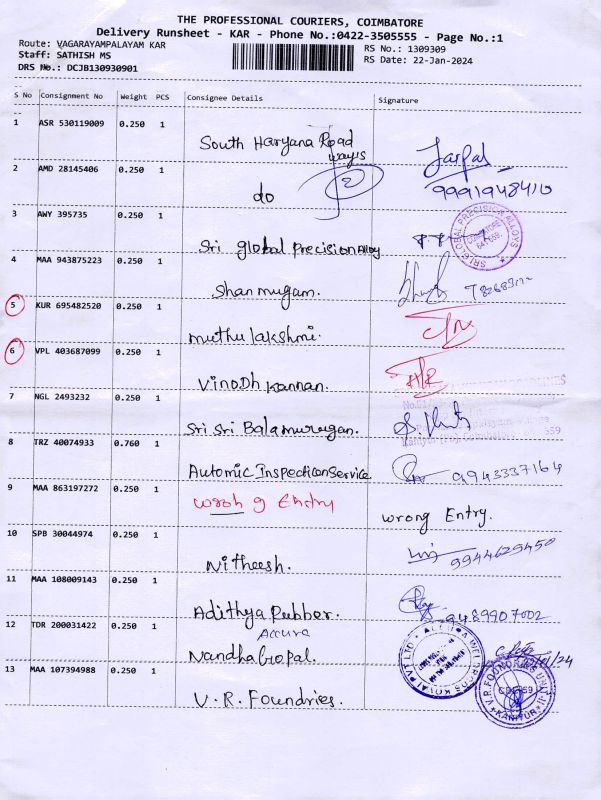 THE PROFESSIONAL COURIERS, COIMBATORE
Delivery Runsheet - KAR - Phone No.:0422-3505555 - Page No.:1
Route: VAGARAYAMPALAYAM KAR
RS No.: 1309309
Staff: SATHISH MS
RS Date: 22-Jan-2024
DRS No.: DCJB130930901
S No Consignment No Weight PCS Consignee Details Signature
1 ASR 530119009 0.250 1
South Haryana Road
ways
Jaspal
2 AMD 28145406 0.250 1
do 2 9991948410
3 AWY 395735 0.250 1
Sri global precision Alloy
4 MAA 943875223 0.250 1
Shanmugam.
5 KUR 695482520 0.250 1
muthulakshmi.
6 VPL 403687099 0.250 1
Vinodh kannan.
7 NGL 2493232 0.250 1
Sri Sri Balamurugan.
8 TRZ 40074933 0.760 1
Automic Inspection Service 9943337164
9 MAA 863197272 0.250 1
wrong Entry wrong Entry.
10 SPB 30044974 0.250 1
Nitheesh. 9944629450
11 MAA 108009143 0.250 1
Adithya Rubber. 9489907002
12 TDR 200031422 0.250 1
Accura
NandhaGopal.
13 MAA 107394988 0.250 1
V.R. Foundries.